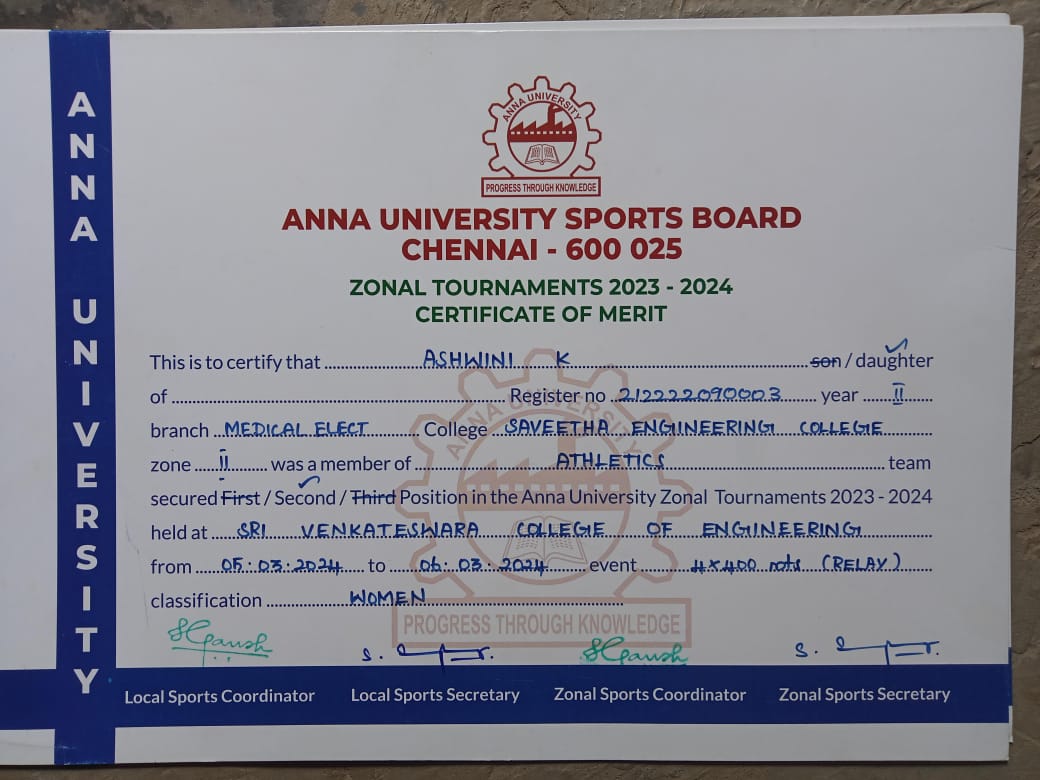 ANNA UNIVERSITY
ANNA UNIVERSITY
PROGRESS THROUGH KNOWLEDGE
ANNA UNIVERSITY SPORTS BOARD
CHENNAI - 600 025
ZONAL TOURNAMENTS 2023 - 2024
CERTIFICATE OF MERIT
This is to certify that ASHWINI K son / daughter
of Register no 212222090003 year II
branch MEDICAL ELECT College SAVEETHA ENGINEERING COLLEGE
zone II was a member of ATHLETICS team
secured First / Second / Third Position in the Anna University Zonal Tournaments 2023 - 2024
held at SRI VENKATESWARA COLLEGE OF ENGINEERING
from 05.03.2024 to 06.03.2024 event 4x400 mts (RELAY)
classification WOMEN
ANNA UNIVERSITY
PROGRESS THROUGH KNOWLEDGE
Local Sports Coordinator Local Sports Secretary Zonal Sports Coordinator Zonal Sports Secretary